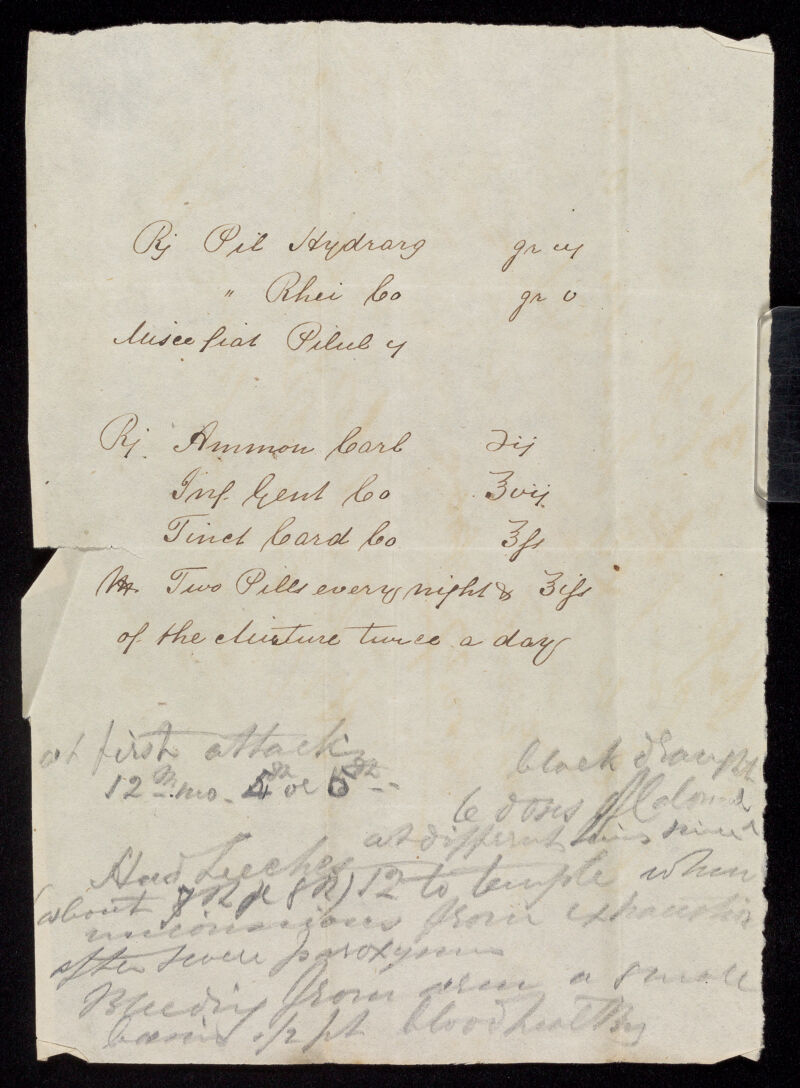 Rj Pil Hydrarg gr iij
" Rhei Co gr v
Misce fiat Pilul ij
Rj. Ammon Carb ℈ij
Inf. Gent Co ʒvij
Tinct Card Co ʒfs
Two Pills every night & ʒifs
of the Mixture twice a day
at first attack
black draught
12th mo. 5th or 6th
6 doses of Calomel
at different times since
Had Leeches
(about 7th or 8th) 12 to temple when
unconscious from exhaustion
after severe paroxysm
Bleeding from arm a small
basin 1/2 pt blood healthy